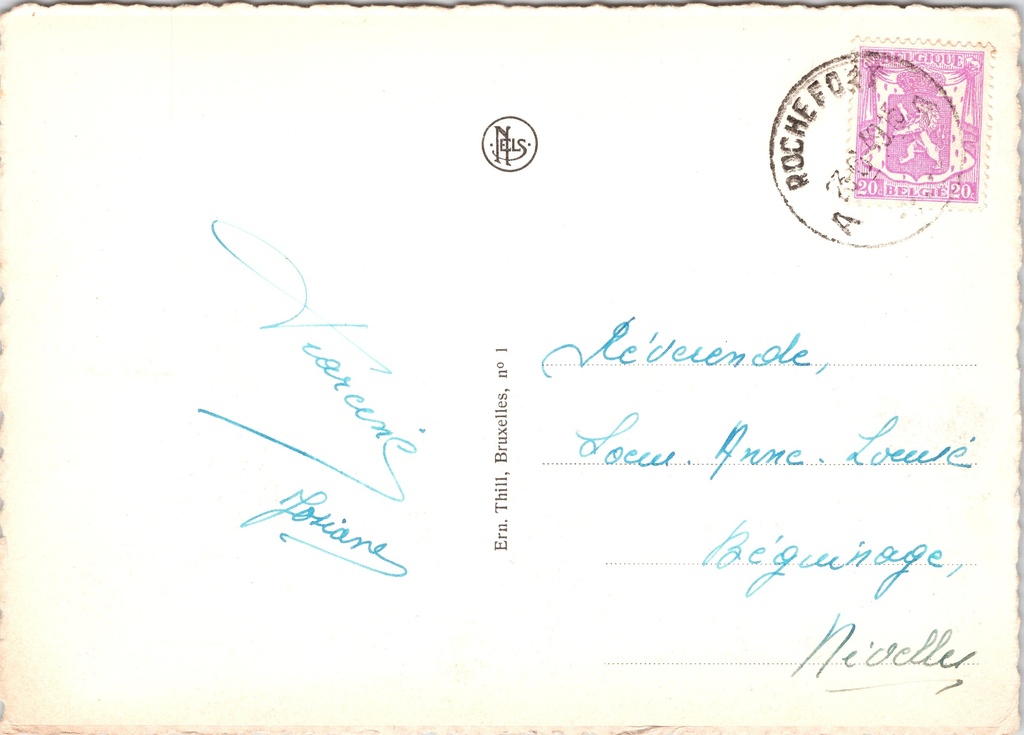 ROCHEFORT
A
BELGIQUE
20c BELGIË 20c
NELS
Ern. Thill, Bruxelles, nº 1
Josiane
Révérende,
Soeur. Anne. Louise
Béguinage,
Nivelles